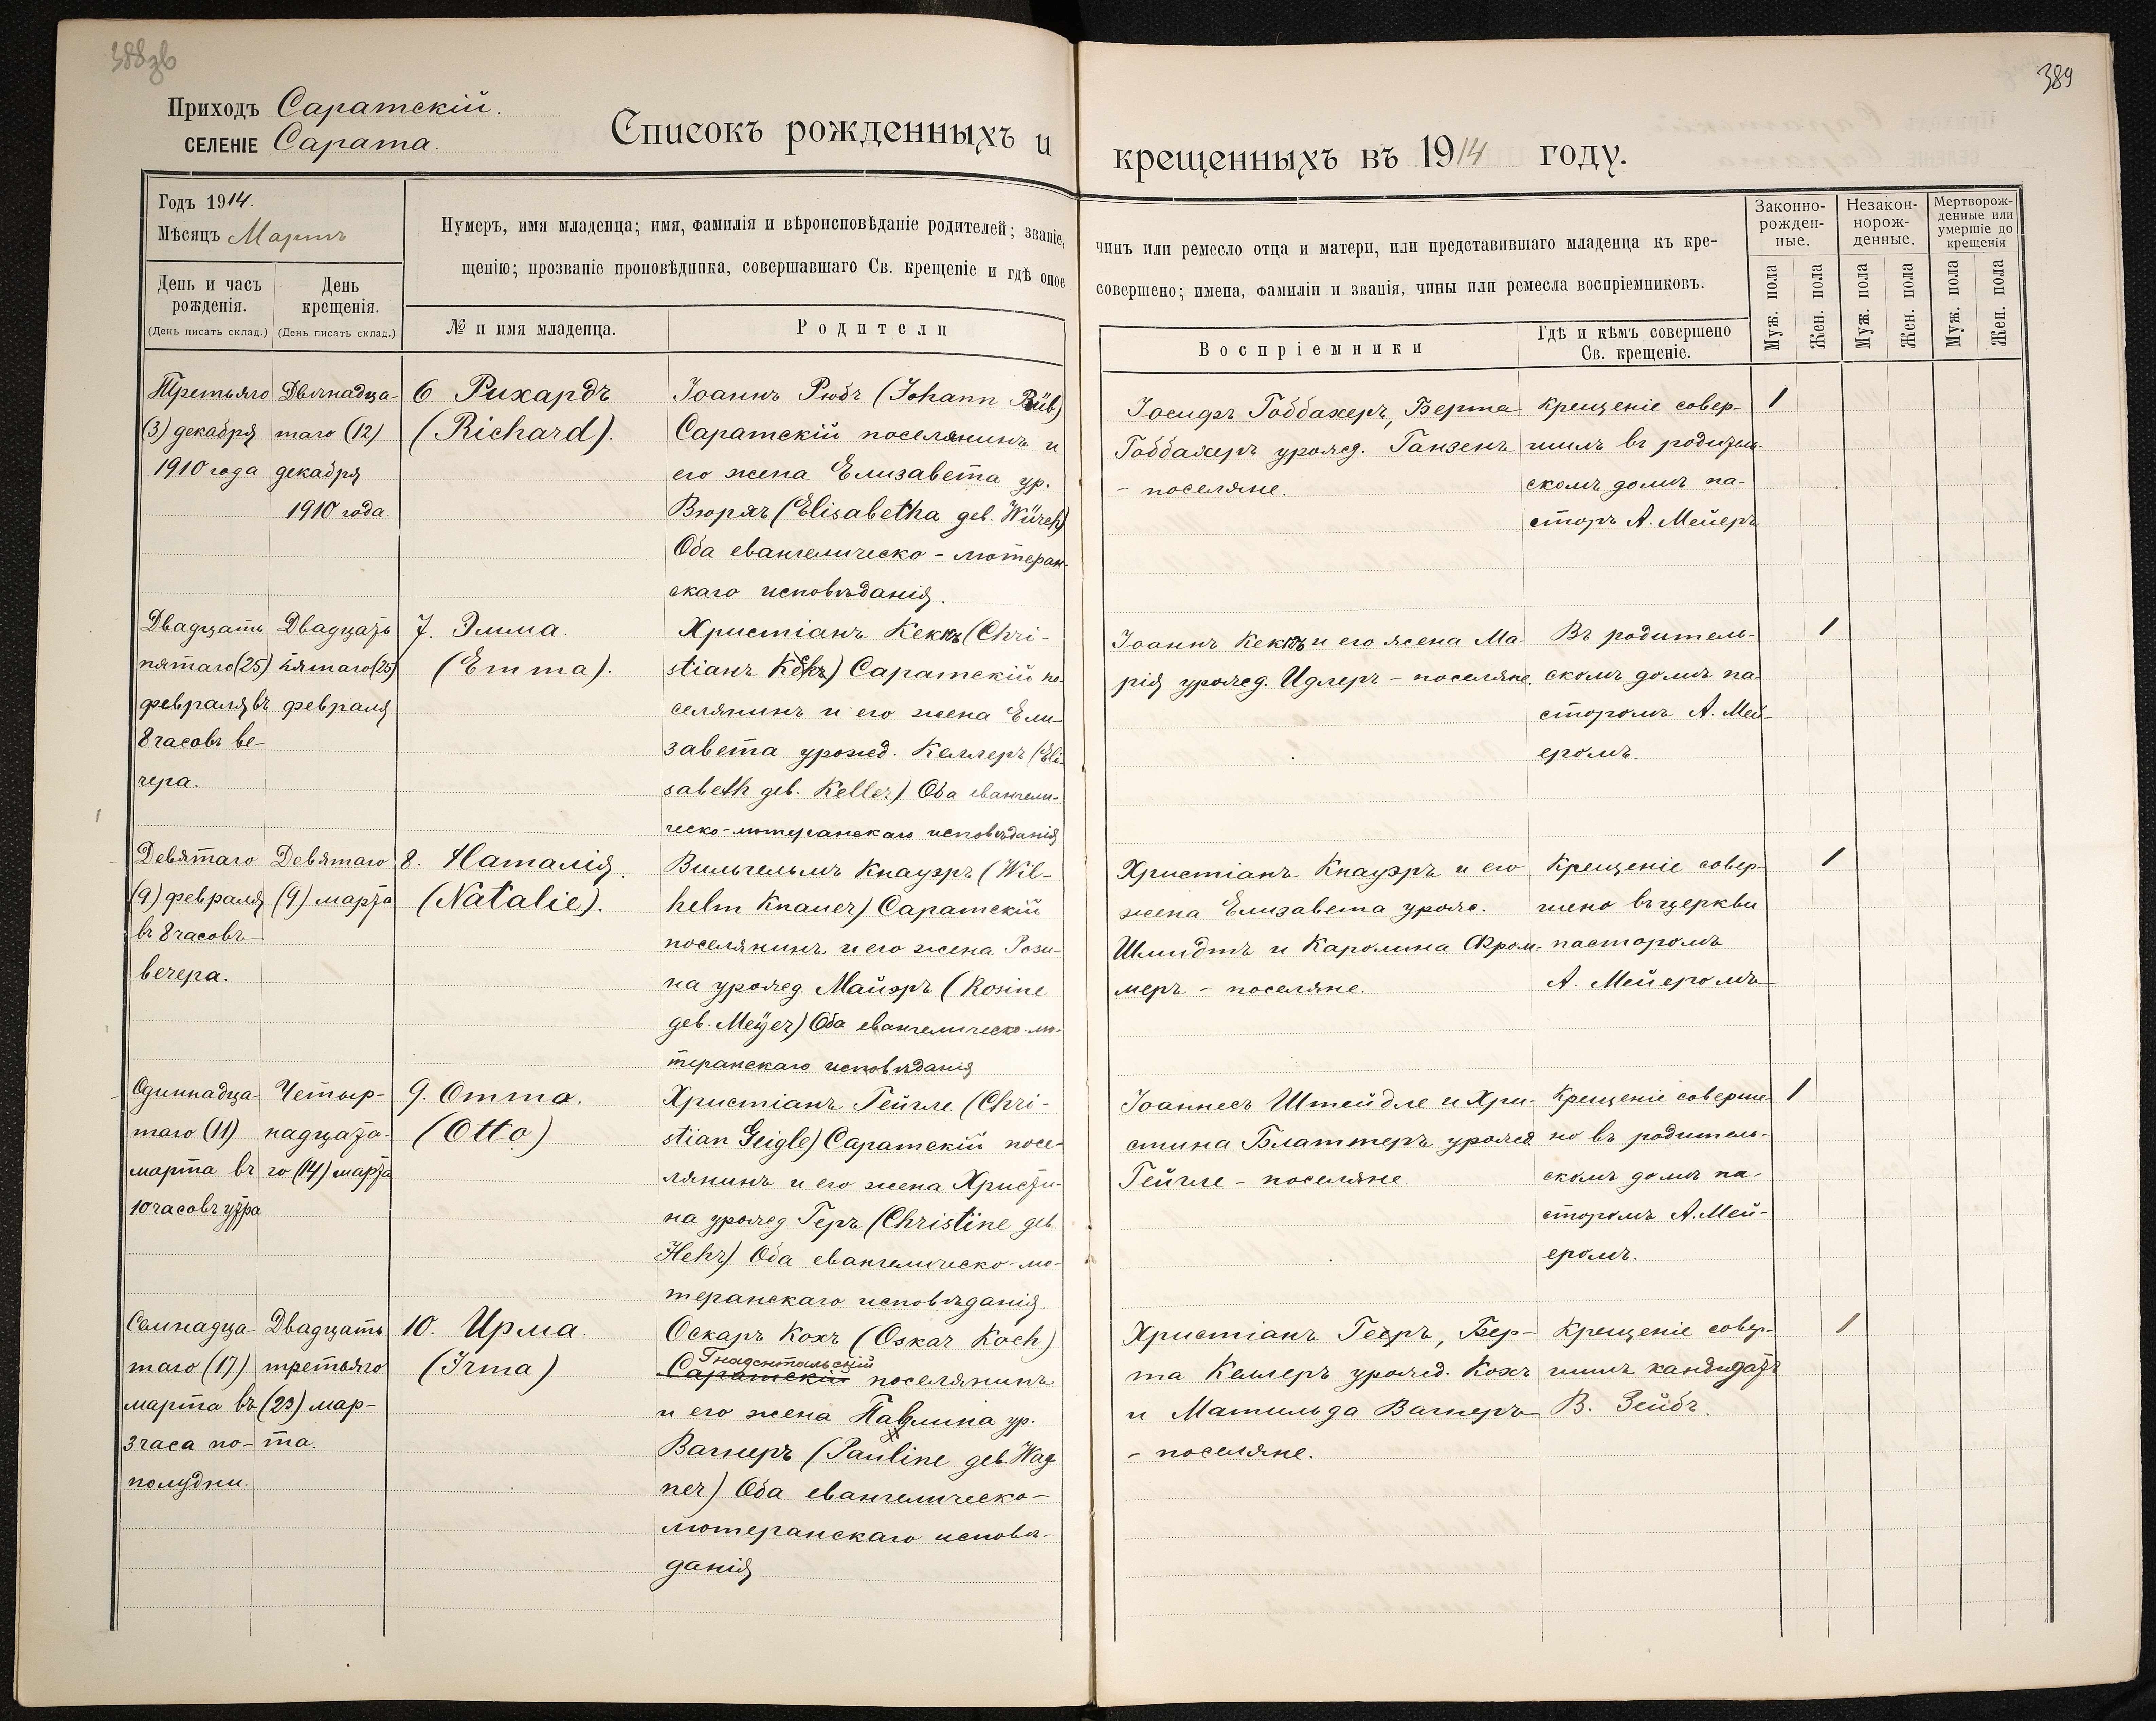 388зв
389
Приходъ Саратскій.
СЕЛЕНІЕ Сарата.
Списокъ рожденныхъ и крещенныхъ въ 1914 году.
Годъ 1914.
Мѣсяцъ Мартъ
День и часъ рожденія.
(День писать склад.)
День крещенія.
(День писать склад.)
Нумеръ, имя младенца; имя, фамилія и вѣроисповѣданіе родителей; званіе, чинъ или ремесло отца и матери, или представившаго младенца къ кре-
щенію; прозваніе проповѣдника, совершавшаго Св. крещеніе и гдѣ оное совершено; имена, фамиліи и званія, чины или ремесла воспріемниковъ.
№ и имя младенца.
Родители
Воспріемники
Гдѣ и кѣмъ совершено
Св. крещеніе.
Законно-
рожден-
ные.
Незакон-
норож-
денные.
Мертворож-
денные или
умершіе до
крещенія
Муж. пола
Жен. пола
Муж. пола
Жен. пола
Муж. пола
Жен. пола
Третьяго
(3) декабря
1910 года
Двѣнадца-
таго (12)
декабря
1910 года
6 Рихардъ
(Richard).
Іоаннъ Рюбъ (Johann Rüb)
Саратскій поселянинъ и
его жена Елизавета ур.
Вюрхъ (Elisabetha geb. Würch)
Оба евангелическо-лютеран-
скаго исповѣданія.
Іосифъ Гоббахеръ, Берта
Гоббахеръ урожд. Ганзенъ
- поселяне.
Крещеніе совер-
шилъ въ родитель-
скомъ домѣ па-
сторъ А. Мейеръ
1
Двадцать
пятаго (25)
февраля въ
8 часовъ ве-
чера.
Двадцать
пятаго (25)
февраля
7. Эмма.
(Emma).
Христіанъ Кеккъ (Chri-
stianъ Kekъ) Саратскій по-
селянинъ и его жена Ели-
завета урожд. Келлеръ (Eli-
sabeth geb. Keller) Оба евангели-
ческо-лютеранскаго исповѣданія
Іоаннъ Кеккъ и его жена Ма-
рія урожд. Идлеръ - поселяне.
Въ родитель-
скомъ домѣ па-
сторомъ А. Мей-
еромъ.
1
Девятаго
(9) февраля
въ 8 часовъ
вечера.
Девятаго
(9) марта
8. Наталія.
(Natalie).
Вильгельмъ Кнауэръ (Wil-
helm Knauer) Саратскій
поселянинъ и его жена Рози-
на урожд. Майэръ (Rosine
geb. Meÿer) Оба евангелическо-лю-
теранскаго исповѣданія
Христіанъ Кнауэръ и его
жена Елизавета урожд.
Шмидтъ и Каролина Фром-
меръ - поселяне.
Крещеніе совер-
шено въ церкви
пасторомъ
А. Мейеромъ
1
Одиннадца-
таго (11)
марта въ
10 часовъ утра
Четыр-
надцата-
го (14) марта
9. Отто.
(Otto)
Христіанъ Гейгле (Chri-
stian Geigle) Саратскій посе-
лянинъ и его жена Христи-
на урожд. Геръ (Christine geb.
Hehr) Оба евангелическо-лю-
теранскаго исповѣданія.
Іоаннесъ Штейдле и Хри-
стина Блаттеръ урожд.
Гейгле - поселяне.
Крещеніе соверше-
но въ родитель-
скомъ домѣ па-
сторомъ А. Мей-
еромъ.
1
Семнадца-
таго (17)
марта въ
3 часа по-
полудни.
Двадцать
третьяго
(23) мар-
та.
10. Ирма.
(Irma)
Оскаръ Кохъ (Oskar Koch)
Гнадентальскій
Саратскій поселянинъ
и его жена Павлина ур.
Вагнеръ (Pauline geb. Wag-
ner) Оба евангелическо-
лютеранскаго исповѣ-
данія
Христіанъ Геръ, Бер-
та Келлеръ урожд. Кохъ
и Матильда Вагнеръ
- поселяне.
Крещеніе совер-
шилъ кандидатъ
В. Зейбъ.
1